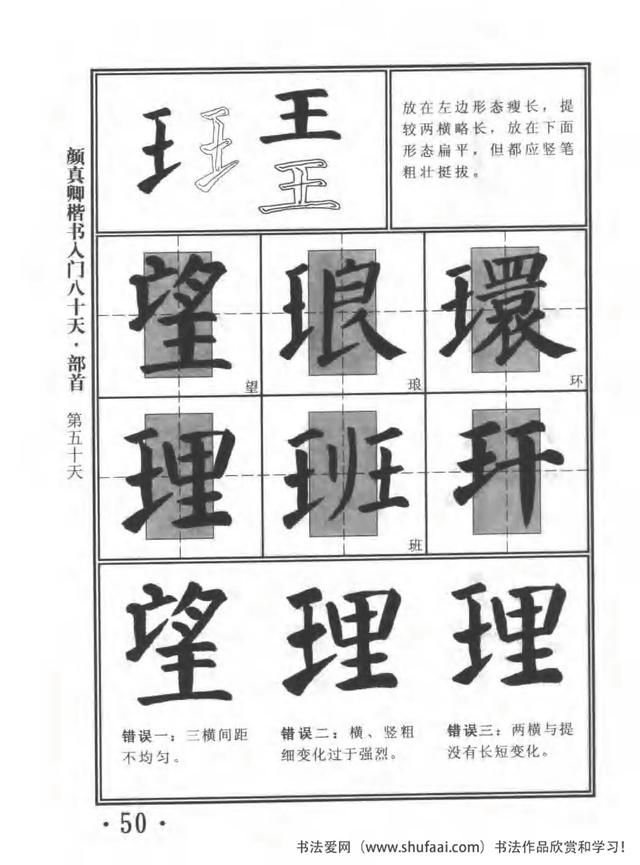 颜真卿楷书入门八十天·部首 第五十天
王 王
王 王
放在左边形态瘦长，提
较两横略长，放在下面
形态扁平，但都应竖笔
粗壮挺拔。
望 琅 環
望 琅 环
理 班 玕
班
望 理 理
错误一：三横间距
不均匀。
错误二：横、竖粗
细变化过于强烈。
错误三：两横与提
没有长短变化。
·50·
书法爱网（www.shufaai.com）书法作品欣赏和学习！